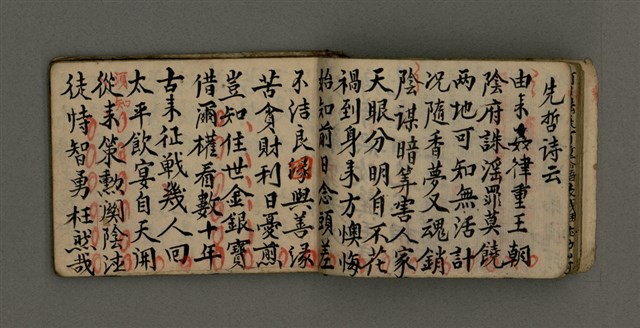 先哲诗云
由来姦律重王朝
陰府誅淫罪莫饒
两地可知無活計
况隨香夢又魂銷
陰謀暗算害人家
天眼分明自不花
禍到身手方懊悔
始知前日念頭差
不结良缘與善缘
苦貪財利日憂煎
豈知住世金銀寶
借爾權看數十年
古来征戰幾人回
太平飲宴自天開
須知
從来策勲關陰注
徒恃智勇枉然哉